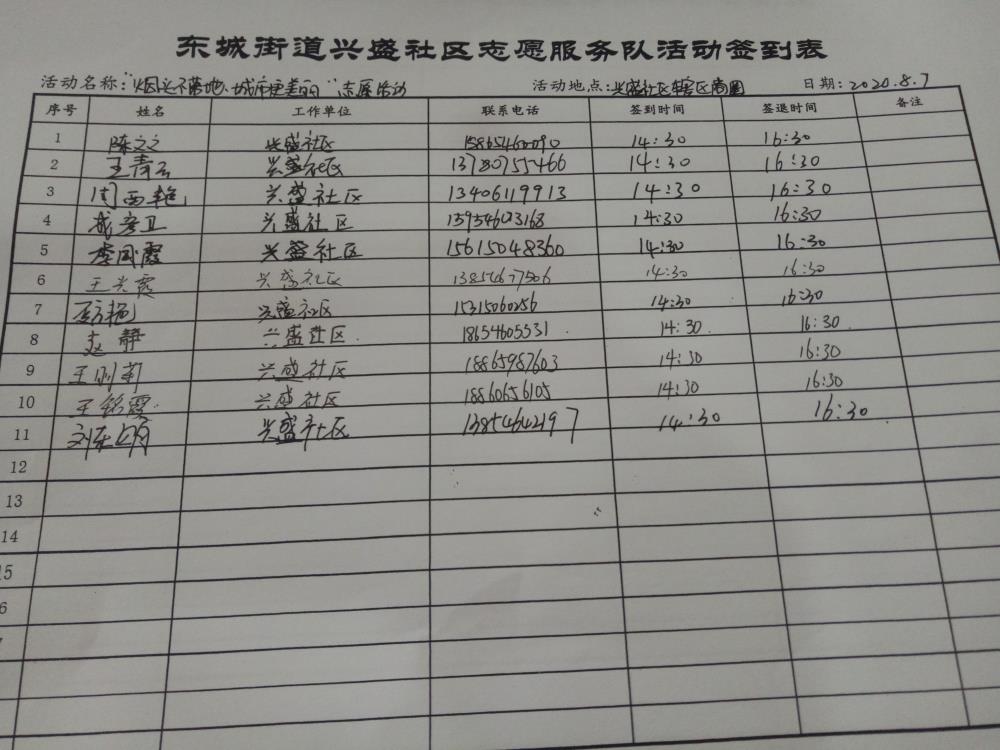 东城街道兴盛社区志愿服务队活动签到表
活动名称:“烟头不落地、城市更美丽”志愿活动 活动地点:兴盛社区辖区商圈 日期:2020.8.7
序号 姓名 工作单位 联系电话 签到时间 签退时间 备注
1 陈文文 兴盛社区 15865460090 14:30 16:30
2 王青云 兴盛社区 13780755466 14:30 16:30
3 周西艳 兴盛社区 13406119913 14:30 16:30
4 兴盛社区 14:30 16:30
5 李国霞 兴盛社区 15615048360 14:30 16:30
6 王兴霞 兴盛社区 13854677506 14:30 16:30
7 兴盛社区 15315060256 14:30 16:30
8 赵静 兴盛社区 18654605531 14:30 16:30
9 王 莉 兴盛社区 18865987603 14:30 16:30
10 王铭霞 兴盛社区 18860656105 14:30 16:30
11 兴盛社区 13854642197 14:30 16:30
12
13
14
15
6